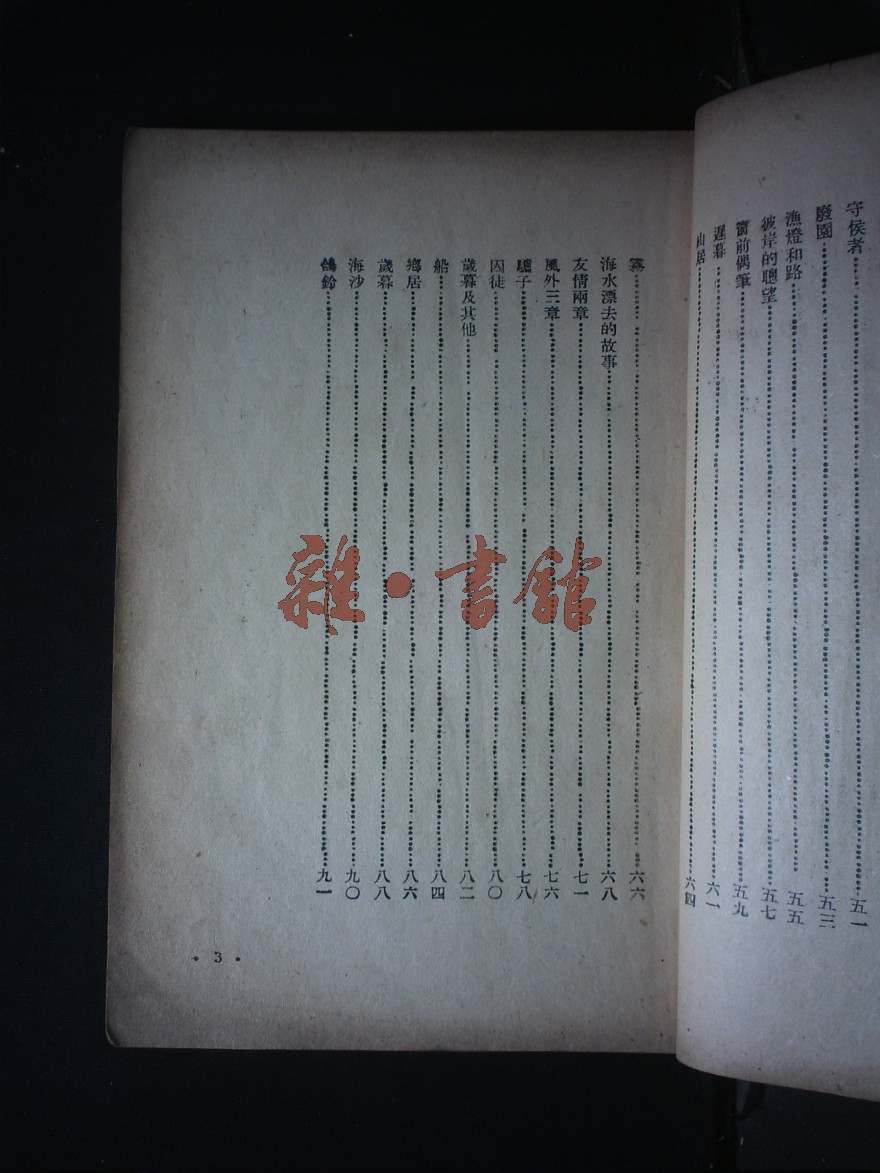 守侯者⋯⋯五一
廢園⋯⋯五三
漁燈和路⋯⋯五五
彼岸的聽望⋯⋯五七
窗前偶筆⋯⋯五九
遲暮⋯⋯六一
山居⋯⋯六四
霧⋯⋯六六
海水漂去的故事⋯⋯六八
友情兩章⋯⋯七一
風外三章⋯⋯七六
驄子⋯⋯七八
囚徒⋯⋯八〇
歲暮及其他⋯⋯八二
船⋯⋯八四
鄉居⋯⋯八六
歲暮⋯⋯八八
海沙⋯⋯九〇
鴿鈴⋯⋯九一
• 3 •
雜•書館